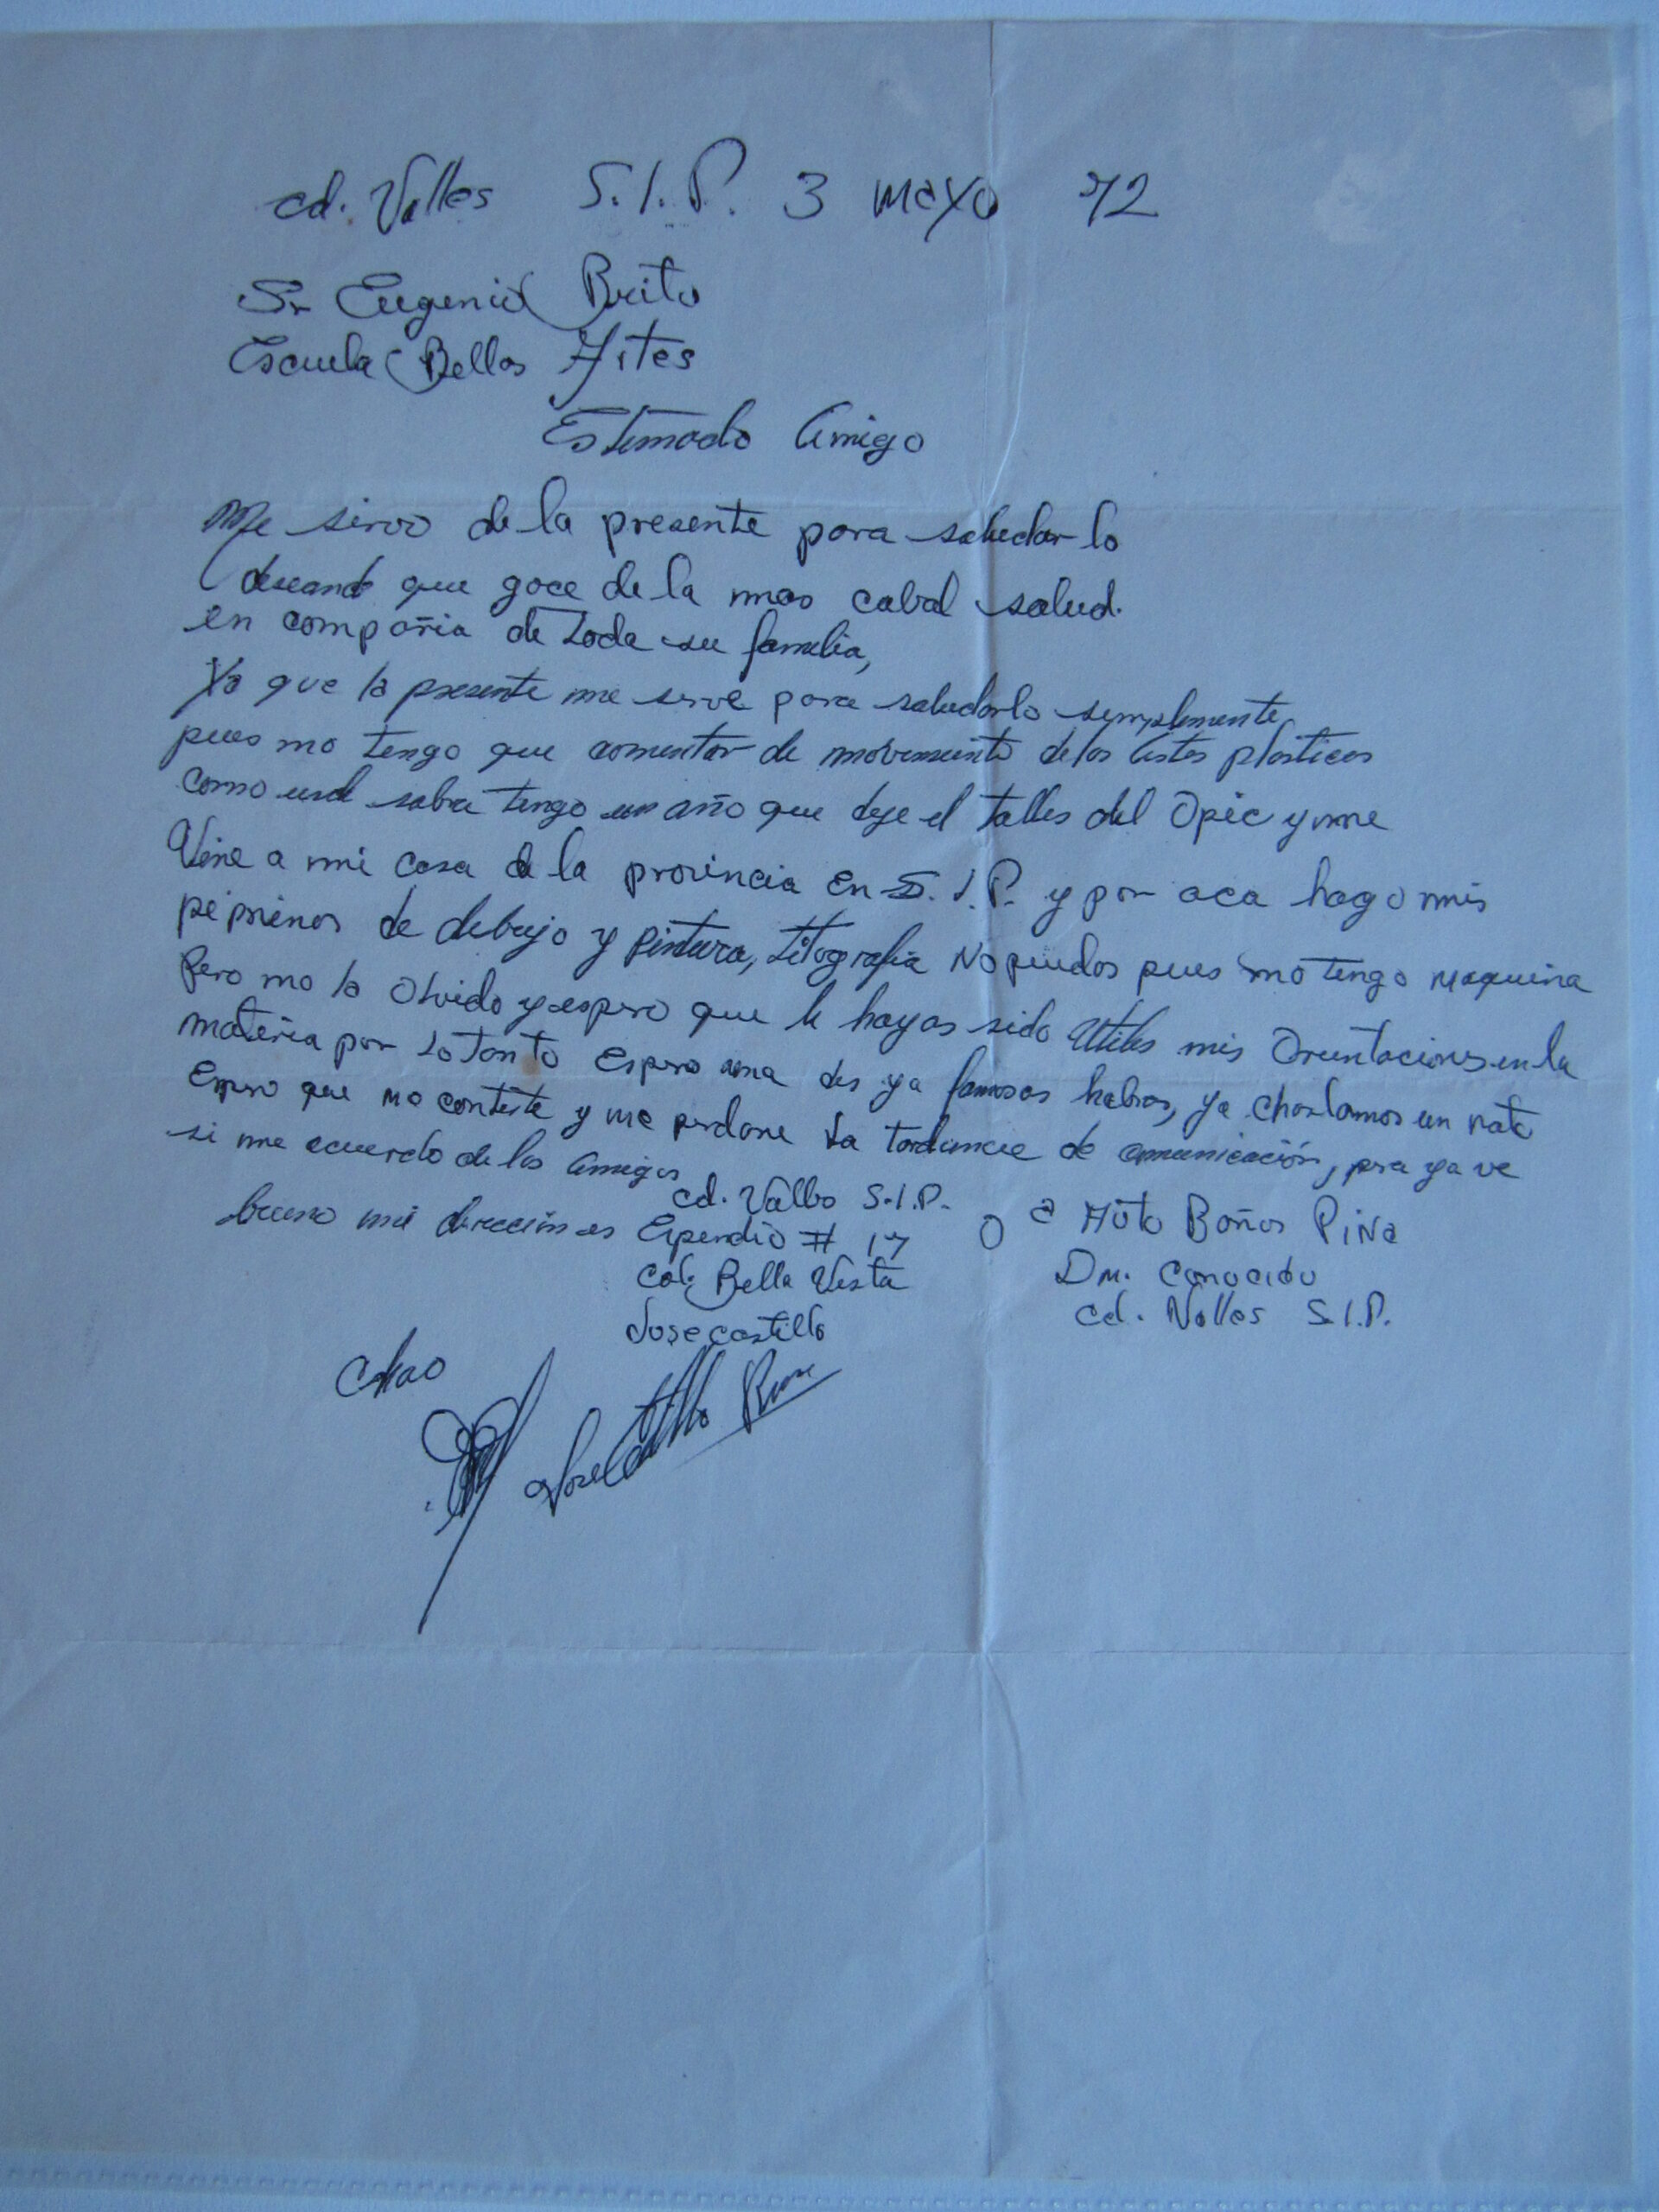 cd. Valles S.L.P. 3 mayo 72
Sr Eugenio Brito
Escuela Bellas Artes
Estimado Amigo
Me sirvo de la presente para saludarlo
deseando que goce de la mas cabal salud.
en compañia de toda su familia,
Ya que la presente me serve para saludarlo simplemente
pues no tengo que comentar de movimiento de las Artes plasticas
como usd sabra tengo un año que deje el taller del Opic y me
Vine a mi casa de la provincia en S.L.P. y por aca hago mis
de dibujo y pintura, Litografia No puedos pues no tengo maquina
Pero no la olvido y espero que le hayas sido Utiles mis Orientaciones en la
materia por lo tanto Espero una des ya famosas habras, ya charlamos un rato
Espero que me conteste y me perdone la tardancia de comunicación, pera ya ve
si me acuerdo de los Amigos
bueno mi direccion es
cd. Valles S.L.P.
Ependio # 17
Col. Bella Vista
Jose castillo
O a Auto Baños Piña
Dm. Conocido
Cd. Valles S.L.P.
Chao
Jose Castillo